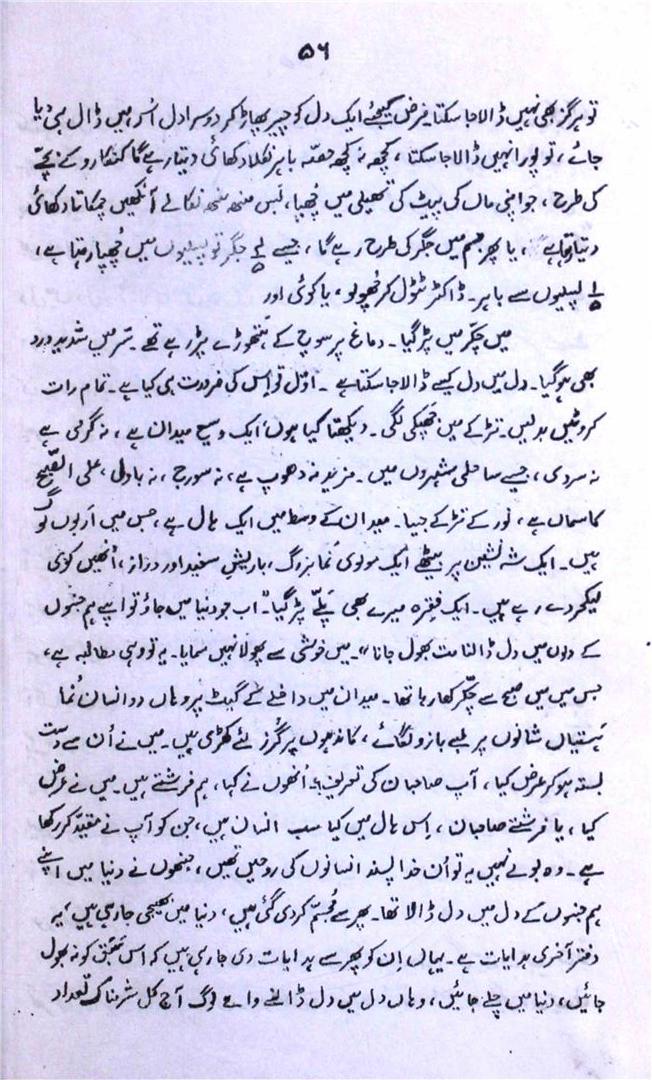 ۵۶
تو ہرگز بھی نہیں ڈالا جا سکتا۔ فرض کیجئے ایک دل کو چیر پھاڑ کر دوسرا دل اُس میں ڈال ہی دیا
جائے، تو پورا نہیں ڈالا جا سکتا، کچھ نہ کچھ حصّہ باہر نکلا دکھائی دیتا رہے گا کنگارو کے بچّے
کی طرح، جو اپنی ماں کی پیٹ کی تھیلی میں چھپا، بس منھ منھ نکالے آنکھیں چمکاتا دکھائی
دیتا رہتا ہے، یا پھر جسم میں جگر کی طرح رہے گا، جیسے ⅘ جگر تو پسلیوں میں چُھپا رہتا ہے،
⅕ پسلیوں سے باہر۔ ڈاکٹر ٹٹول کر چُھولو، یا کوئی اور
میں چکّر میں پڑ گیا۔ دماغ پر سوچ کے ہتھوڑے پڑ رہے تھے۔ سَر میں شدید درد
بھی ہو گیا۔ دل میں دل کیسے ڈالا جا سکتا ہے۔ اوّل تو اِس کی ضرورت ہی کیا ہے۔ تمام رات
کروٹیں بدلیں۔ تڑکے میں جَھپکی لگی۔ دیکھتا کیا ہوں، ایک وسیع میدان ہے، نہ گرمی ہے
نہ سردی، جیسے ساحلی شہروں میں۔ مزید نہ دھوپ ہے، نہ سورج، نہ بادل، علی الصّبح
کا سماں ہے، نُور کے تڑکے جیسا۔ میدان کے وسط میں ایک ہال ہے، جس میں اَربوں لوگ
ہیں۔ ایک شہ نشین پر بیٹھے ایک مولوی نُما بزرگ، باریشِ سفید اور دراز، اُنھیں کوئی
لیکچر دے رہے ہیں۔ ایک فقرہ میرے بھی پَلّے پڑ گیا "اب جو دنیا میں جاؤ تو اپنے ہم جنسوں
کے دلوں میں دل ڈالنا مت بھول جانا"۔ میں خوشی سے پھولا نہیں سمایا۔ یہ تو وہی مطالبہ ہے،
جس میں میں صبح سے چکّر کھا رہا تھا۔ میدان میں داخلے کے گیٹ پر وہاں دو انسان نُما
ہَستیاں شانوں پر لمبے بازو لگائے، کاندھوں پر گُرز لئے کھڑی ہیں۔ میں نے اُن سے دست
بستہ ہو کر عرض کیا، آپ صاحبان کی تعریف؟ اُنھوں نے کہا، ہم فرشتے ہیں۔ میں نے عرض
کیا، یا فرشتے صاحبان، اِس ہال میں کیا سب انسان ہیں، جن کو آپ نے مقیّد کر رکھا
ہے۔ وہ بولے نہیں یہ تو اُن خدا پسند انسانوں کی روحیں تھیں، جنھوں نے دنیا میں اپنے
ہم جنسوں کے دل میں دل ڈالا تھا۔ پھر سے مُجسّم کر دی گئی ہیں، دنیا میں بھیجی جا رہی ہیں، یہ
دفترِ آخری ہدایات ہے۔ یہاں اِن کو پھر سے ہدایات دی جا رہی ہیں کہ اس سَبق کو نہ بھول
جائیں، دنیا میں چلے جائیں، وہاں دل میں دل ڈالنے والے لوگ آج کل شرمناک تعداد